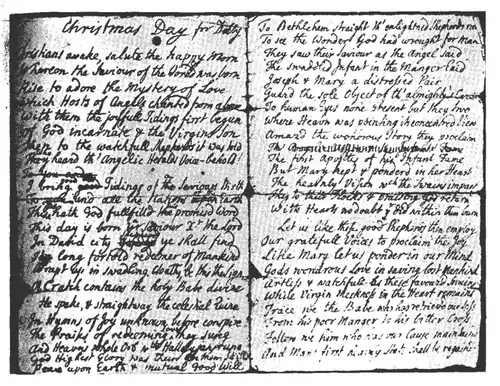 Christmas Day for Dolly
Christians awake, salute the happy Morn
Whereon the Saviour of the World was born
Rise to adore the Mystery of Love
Which Hosts of Angels chanted from above
With them the joyfull Tidings first begun
of God incarnate & the Virgins Son
Then to the watchfull Shepherds it was told
They heard th' Angelic Heralds Voice behold!
I bring good Tidings of the Saviours Birth
To you and all the Nations upon Earth
This hath God fullfilld the promisd Word
This day is born a Saviour the Lord
In Davids city ye shall find
The long foretold redeemer of Mankind
Wrapt up in swadling cloaths be this the sign
A Cratch contains the holy Babe divine
He spake, & straightway the celestial Quire
In Hymns of Joy unknown before conspire
The Praises of redeeming Love they sung
And Heavns whole Orb with Hallelujahs rung
God Highest Glory was their Anthem still
Peace upon Earth & mutual Good Will
To Bethlehem straight th' enlightned Shepherds ran
To see the Wonder God had wrought for Man
They saw their Saviour as the Angel said
The swaddled Infant in the Manger laid
Joseph & Mary a distressed Pair
Guard the sole Object of th' almighty's Care
To human Eyes none present but they two
Where Heavn was pointing its concentred View
Amazd the wondrous Story they proclaim
The first Apostles of his Infant Fame
But Mary kept & ponderd in her Heart
The heavnly Vision which the Swains impart
They to their Flocks & praising God return
With Hearts no doubt that did within them burn
Let us like these good Shepherds then employ
Our gratefull Voices to proclaim the Joy
Like Mary let us ponder in our Mind
Gods wondrous Love in saving lost Mankind
Artless & watchfull as these favourd Swains
While Virgin Meekness in the Heart remains
Trace we the Babe who has retrievd our loss
From his poor Manger to his bitter Cross
Follow we him who has our Cause maintaind
And Man's first State shall be regaind